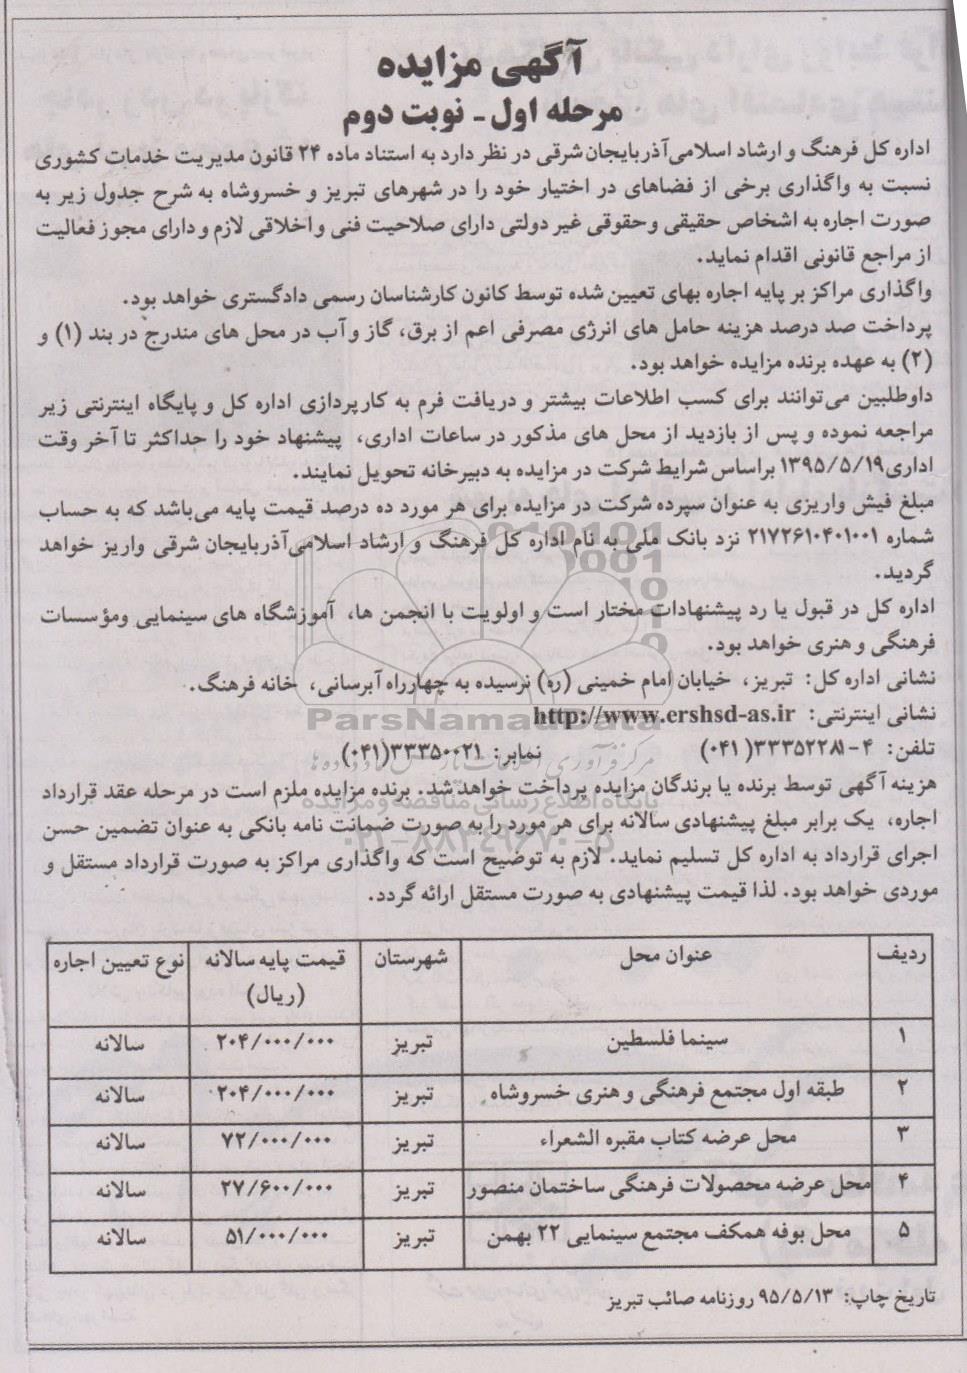 آگهی مزایده
مرحله اول ـ نوبت دوم
اداره کل فرهنگ و ارشاد اسلامی آذربایجان شرقی در نظر دارد به استناد ماده ۲۴ قانون مدیریت خدمات کشوری
نسبت به واگذاری برخی از فضاهای در اختیار خود را در شهرهای تبریز و خسروشاه به شرح جدول زیر به
صورت اجاره به اشخاص حقیقی وحقوقی غیر دولتی دارای صلاحیت فنی و اخلاقی لازم و دارای مجوز فعالیت
از مراجع قانونی اقدام نماید.
واگذاری مراکز بر پایه اجاره بهای تعیین شده توسط کانون کارشناسان رسمی دادگستری خواهد بود.
پرداخت صد درصد هزینه حامل های انرژی مصرفی اعم از برق، گاز و آب در محل های مندرج در بند (۱) و
(۲) به عهده برنده مزایده خواهد بود.
داوطلبین می‌توانند برای کسب اطلاعات بیشتر و دریافت فرم به کارپردازی اداره کل و پایگاه اینترنتی زیر
مراجعه نموده و پس از بازدید از محل های مذکور در ساعات اداری، پیشنهاد خود را حداکثر تا آخر وقت
اداری ۱۳۹۵/۵/۱۹ براساس شرایط شرکت در مزایده به دبیرخانه تحویل نمایند.
مبلغ فیش واریزی به عنوان سپرده شرکت در مزایده برای هر مورد ده درصد قیمت پایه می‌باشد که به حساب
شماره ۲۱۷۲۶۱۰۴۰۱۰۰۱ نزد بانک ملی به نام اداره کل فرهنگ و ارشاد اسلامی آذربایجان شرقی واریز خواهد
گردید.
اداره کل در قبول یا رد پیشنهادات مختار است و اولویت با انجمن ها، آموزشگاه های سینمایی ومؤسسات
فرهنگی و هنری خواهد بود.
نشانی اداره کل: تبریز، خیابان امام خمینی (ره) نرسیده به چهارراه آبرسانی، خانه فرهنگ.
نشانی اینترنتی: http://www.ershsd-as.ir
تلفن: ۴-۳۳۳۵۲۲۸۱(۰۴۱) نمابر: ۳۳۳۵۰۰۲۱(۰۴۱)
هزینه آگهی توسط برنده یا برندگان مزایده پرداخت خواهد شد. برنده مزایده ملزم است در مرحله عقد قرارداد
اجاره، یک برابر مبلغ پیشنهادی سالانه برای هر مورد را به صورت ضمانت نامه بانکی به عنوان تضمین حسن
اجرای قرارداد به اداره کل تسلیم نماید. لازم به توضیح است که واگذاری مراکز به صورت قرارداد مستقل و
موردی خواهد بود. لذا قیمت پیشنهادی به صورت مستقل ارائه گردد.
ردیف عنوان محل شهرستان قیمت پایه سالانه (ریال) نوع تعیین اجاره
۱ سینما فلسطین تبریز ۲۰۴/۰۰۰/۰۰۰ سالانه
۲ طبقه اول مجتمع فرهنگی و هنری خسروشاه تبریز ۲۰۴/۰۰۰/۰۰۰ سالانه
۳ محل عرضه کتاب مقبره الشعراء تبریز ۷۲/۰۰۰/۰۰۰ سالانه
۴ محل عرضه محصولات فرهنگی ساختمان منصور تبریز ۲۷/۶۰۰/۰۰۰ سالانه
۵ محل بوفه همکف مجتمع سینمایی ۲۲ بهمن تبریز ۵۱/۰۰۰/۰۰۰ سالانه
تاریخ چاپ: ۹۵/۵/۱۳ روزنامه صائب تبریز
ParsNamadData
پایگاه اطلاع رسانی مناقصه و مزایده
۰۲۱-۸۸۳۴۹۶۷۰-۵